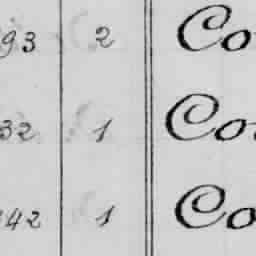 93 2 Co
32 1 Co
42 1 Co